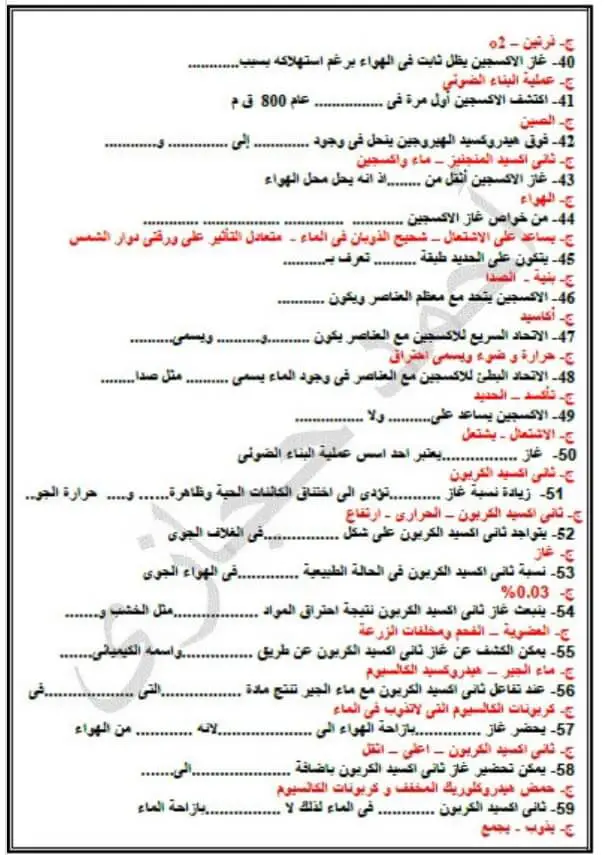 ج- ذرتين – o2
40- غاز الاكسجين يظل ثابت فى الهواء برغم استهلاكه بسبب............
ج- عملية البناء الضوئى
41- اكتشف الاكسجين أول مرة فى ................ عام 800 ق م
ج- الصين
42- فوق هيدروكسيد الهيروجين ينحل فى وجود ............. إلى .............. و............
ج- ثانى اكسيد المنجنيز – ماء واكسجين
43- غاز الاكسجين أثقل من ........اذ انه يحل محل الهواء
ج- الهواء
44- من خواص غاز الاكسجين ............ .............. .................. .............
ج- يساعد على الاشتعال – شحيح الذوبان فى الماء - متعادل التأثير على ورقتى دوار الشمس
45- يتكون على الحديد طبقة .......... تعرف بـ..........
ج- بنية - الصدا
46- الاكسجين يتحد مع معظم العناصر ويكون ...........
ج- أكاسيد
47- الاتحاد السريع للاكسجين مع العناصر يكون ..........و.......... ويسمى..........
ج- حرارة و ضوء ويسمى احتراق
48- الاتحاد البطئ للاكسجين مع العناصر فى وجود الماء يسمى .......... مثل صدا........
ج- تأكسد – الحديد
49- الاكسجين يساعد على.......... ولا ................
ج- الاشتعال - يشتعل
50- غاز ..................يعتبر احد اسس عملية البناء الضوئى
ج- ثانى اكسيد الكربون
51- زيادة نسبة غاز ............تؤدى الى اختناق الكائنات الحية وظاهرة...... و.... حرارة الجو..
ج- ثانى اكسيد الكربون – الحرارى - ارتفاع
52- يتواجد ثانى اكسيد الكربون على شكل ..................فى الغلاف الجوى
ج- غاز
53- نسبة ثانى اكسيد الكربون فى الحالة الطبيعية .............فى الهواء الجوى
ج- 0.03%
54- ينبعث غاز ثانى اكسيد الكربون نتيجة احتراق المواد ..................مثل الخشب و........
ج- العضوية – الفحم ومخلفات الزرعة
55- يمكن الكشف عن غاز ثانى اكسيد الكربون عن طريق ................واسمه الكيميائى........
ج- ماء الجير – هيدروكسيد الكالسيوم
56- عند تفاعل ثانى اكسيد الكربون مع ماء الجير تنتج مادة .................التى .................فى
ج- كربونات الكالسيوم التى لاتذوب فى الماء
57- يحضر غاز ..............بازاحة الهواء الى ....................لانه ............ من الهواء
ج- ثانى اكسيد الكربون – اعلى – اثقل
58- يمكن تحضير غاز ثانى اكسيد الكربون باضافة ..................الى.......
ج- حمض هيدروكلوريك المخفف و كربونات الكالسيوم
59- ثانى اكسيد الكربون ............ فى الماء لذلك لا ................بازاحة الماء
ج- يذوب - يجمع
احمد حجازى